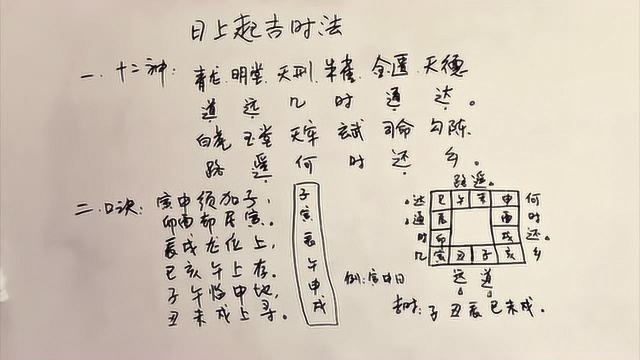 日上起吉时法
一、十二神: 青龙 明堂 天刑 朱雀 金匮 天德
道 远 几 时 通 达。
白虎 玉堂 天牢 玄武 司命 勾陈
路 遥 何 时 还 乡。
二、口诀: 寅申须加子,
卯酉却居寅。
辰戌龙位上,
巳亥午上存。
子午临申地,
丑未戌上寻。
子
寅
辰
午
申
戌
例: 寅申日
路遥。
达 巳 午 未 申 何
通 辰 酉 时
时 卯 戌 还
几 寅 丑 子 亥 乡
远 道
吉时: 子 丑 辰 巳 未 戌.